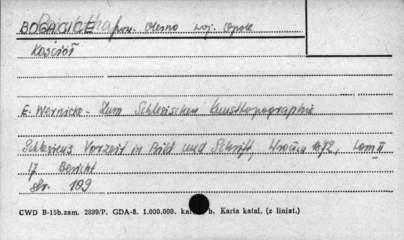 BOGACICE pow. Olesno woj. Opole
Kościół
E. Wernicke - Zum Schlesischen Kunsttopographie
Schlesiens Vorzeit in Bild und Schrift, Wrocław 1872, tom II
17 Bericht
str. 109
CWD B-15b.zam. 2899/P. GDA-8. 1.000.000. kar. b. Karta katal. (z liniat.)